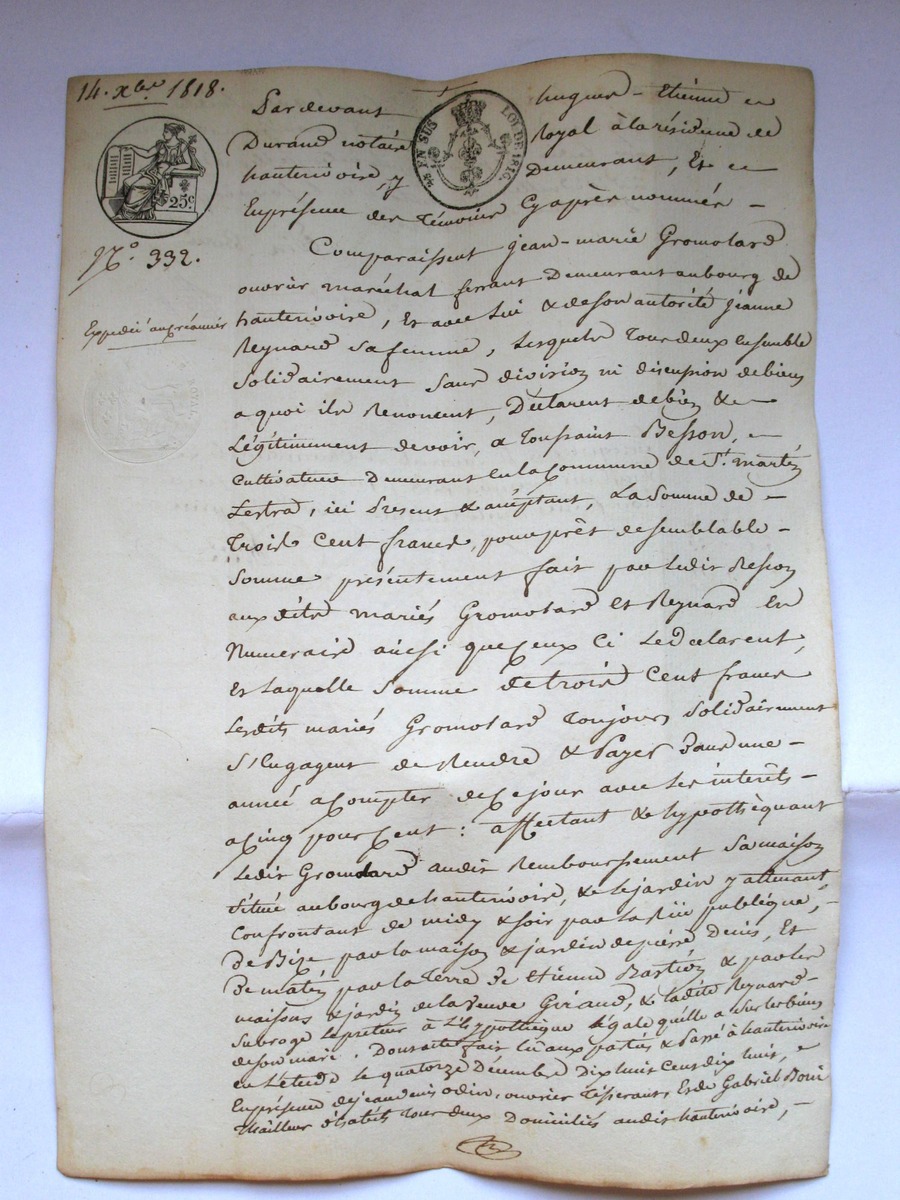 14. Xbre. 1818.
25c.
¼ EN SUS LOI DE 1816.
N.° 332.
Expédié au créancier
Pardevant hugues - Etienne
Durand notaire Royal à la résidence de
hauterivoire, y Demeurant, Et
En présence des Témoins Cy après nommés -
Comparaissent jean-marie Gromolard
ouvrier maréchal ferrant Demeurant au bourg de
hauterivoire, Et avec Lui & de son autorité jeanne
Reynard sa femme, Lesquels Tous deux Ensemble
Solidairement Sans division ni discussion de biens
a quoi ils Renoncent, Déclarent debien &
Légitimement devoir, a Toussaint Besson,
Cultivateur Demeurant En la Commune de St. martin
Lestra, ici Présent & acceptant, La Somme de -
Trois Cent francs, pour prêt de semblable -
Somme présentement fait par Ledit Besson
aux dits mariés Gromolard Et Reynard En
Numeraire ainsi que Ceux Ci Le Declarent,
Et Laquelle Somme de trois Cent francs
Lesdits mariés Gromolard Toujours Solidairement
S'Engagent de Rendre & Payer Dans une -
année a Compter de Ce jour avec Les interêts -
a Cinq pour Cent : affectant & hypothèquant
Ledit Gromolard audit Remboursement Sa maison
située au bourg de hauterivoire, & Le jardin y attenant
Confrontant de midy & soir par La Rüe publique, -
De Bize par La maison & jardin de pierre Denis, Et
De matin par La Terre De Etienne & par Les
maisons & jardin de La Veuve Giraud, & Ladite Reynard -
Subroge Le prêteur à L'Hypothèque Légale qu'elle a Sur Les biens
de son mari. Dont acte fait Lû aux parties & Passé à hauterivoire
en L'étude Le quatorze Décembre Dix huit Cent dix huit,
En présence de jean denis odin, ouvrier Tisserant, Et de Gabriel
Thailleur d'habits Tous deux Domiciliés audit hauterivoire, -